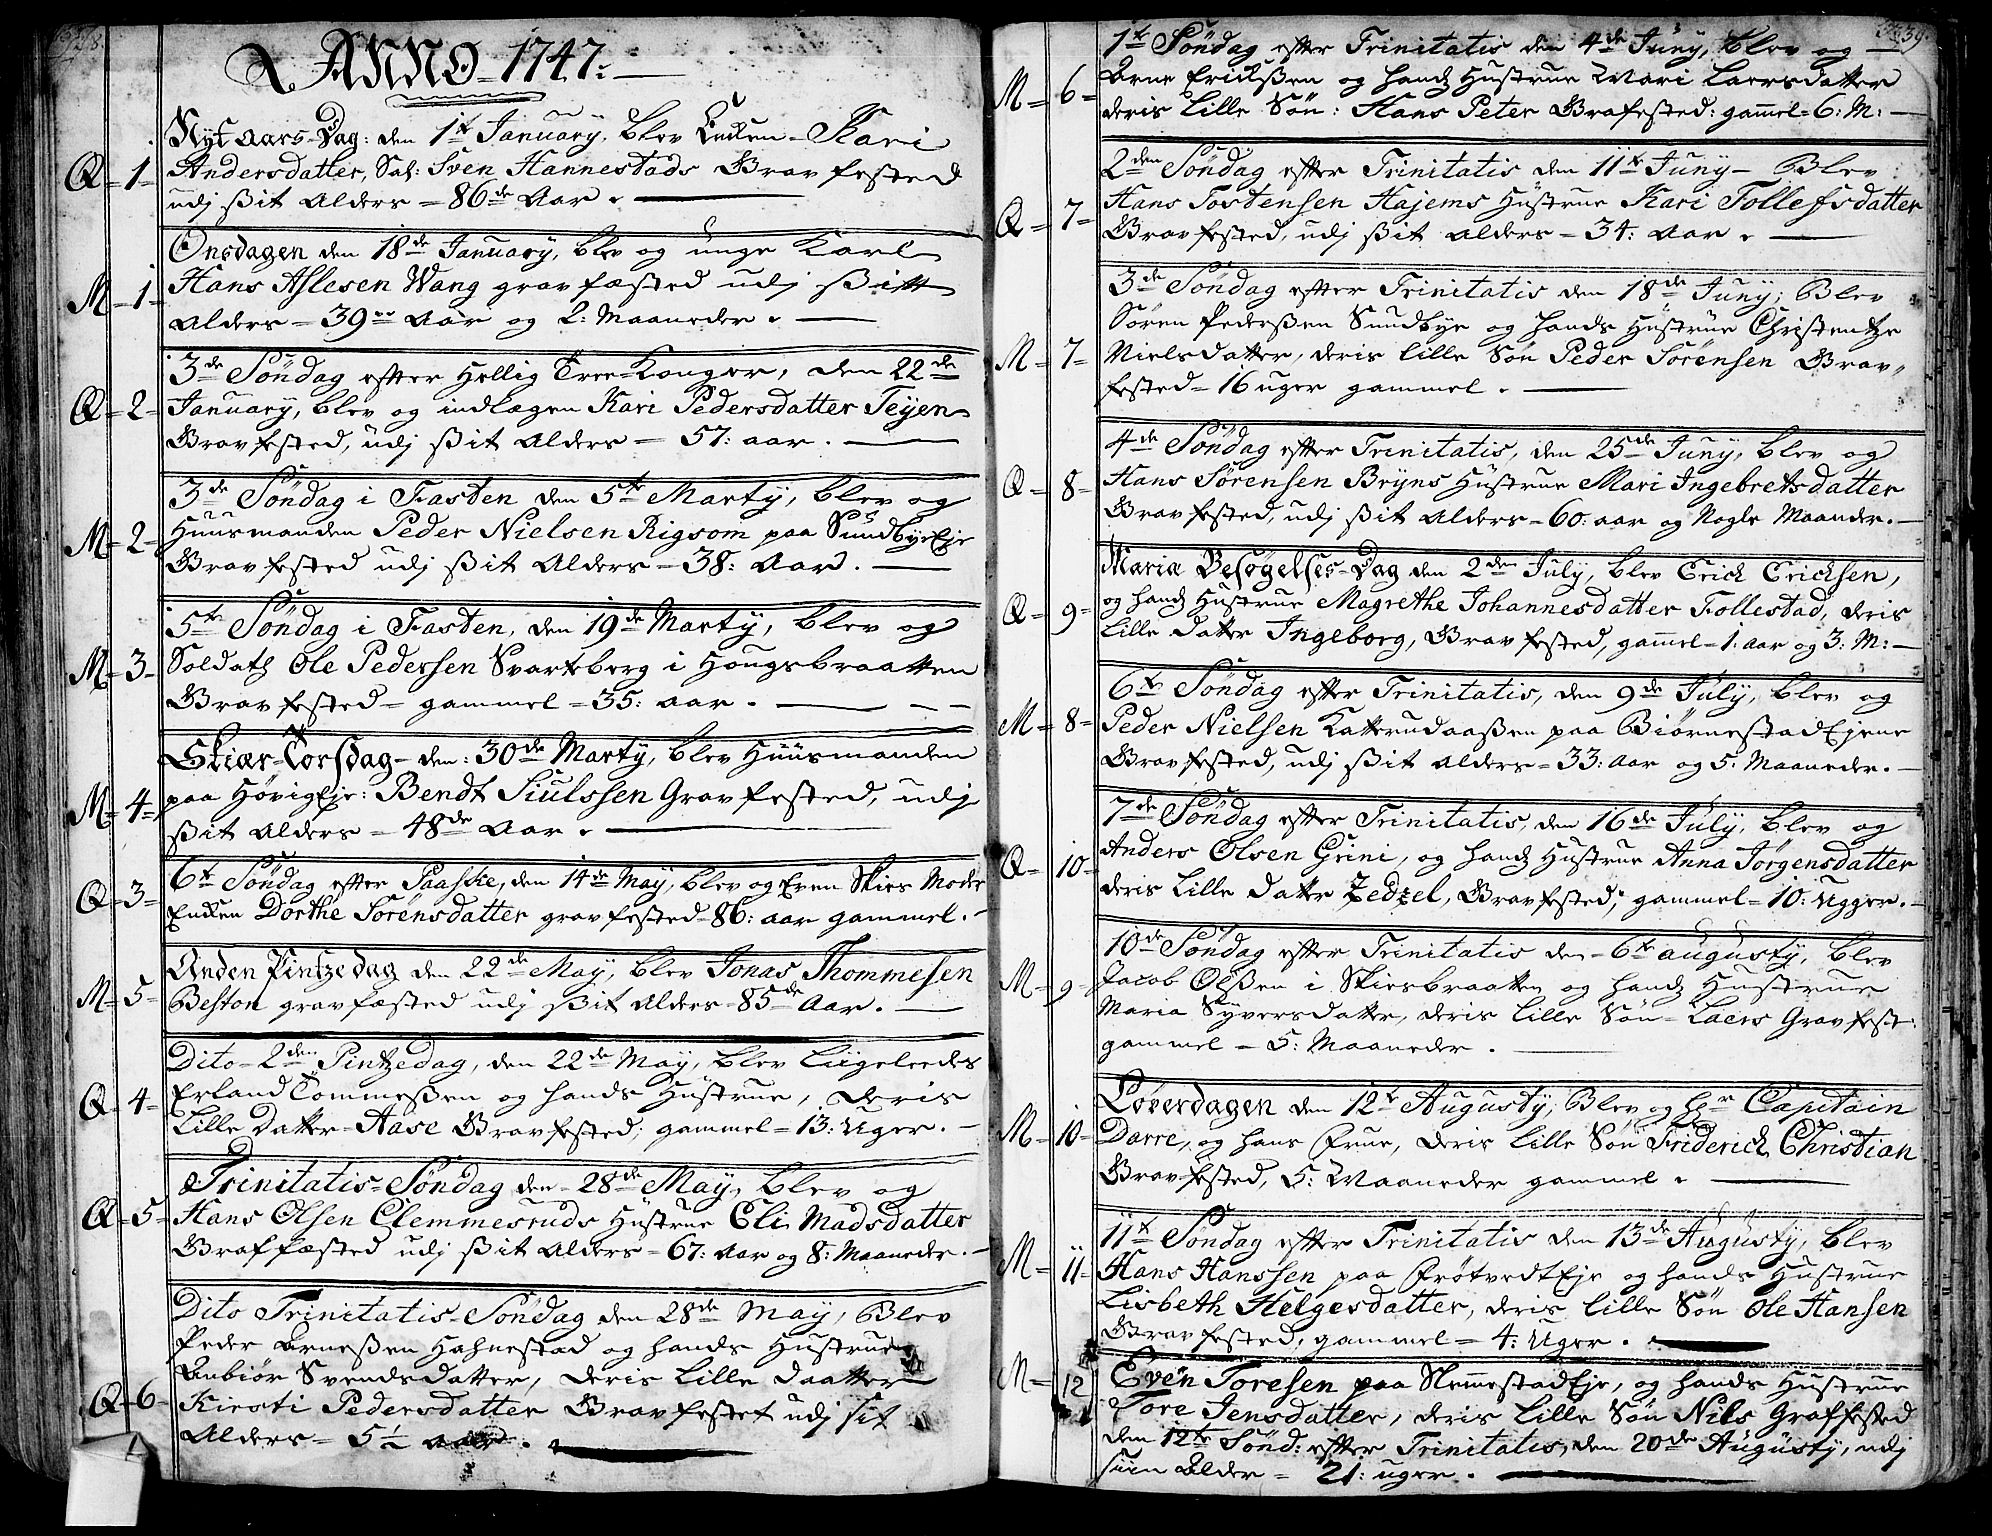 ANNO-1747:
Nyt aars-Dag: den 1te January, blev Encken Kari
Q 1 Andersdatter, Sal: Sven Hannestads Gravfested
udj ßit Alders = 86de Aar.
Onsdagen den 18de January, blev og unge Karl
M 1 Hans Aslesen Wang gravfæsted udj ßitt
Alders = 39 Aar og 2: Maaneder.
3de Søndag efter Hellig Tree-Konger, den 22de
Q 2 January, blev og indlægen Kari Pedersdatter Teyen
Gravfested, udj ßit Alders = 57: aar.
3de Søndag i Fasten den 5te Marty, blev og
M 2 Huusmanden Peder Nielsen Rigsom paa SundbyeEje
Gravfested udj ßit Alders = 38: Aar.
5te Søndag i Fasten, den 19de Marty, blev og
M 3 Soldat Ole Pedersen Svarteberg i Hougsbraatten
Gravfested = gammel = 35: aar.
Skiær-Torsdag- den: 30de Marty, blev Huusmanden
M 4 paa HøvigEje: Bendt Siulssen Gravfested, udj
ßit Alders = 48de Aar.
6te Søndag efter Paaske, den 14de May, blev og Even Skies Moder
Q 3 Encken Dorthe Sørensdatter gravfested = 86: aar gammel.
Anden Pintzedag den 22de May, blev Jonas Thommesen
M 5 Beston gravfæsted udj ßit Alders = 85de Aar.
Dito- 2den Pintzedag, den 22de May, blev Liigeleedes
Q 4 Erland Tommeßen og hands Hustrue, deris
Lille Datter Aase Gravfested; gammel = 13: Uger.
Trinitatis-Søndag den 28de May, blev og
Q 5 Hans Olsen Clemmesruds Hustrue Eli Madsdatter
Graffæsted udj ßit Alders = 67: Aar og 8: Maaneder.
Dito Trinitatis-Søndag den 28de May, Blev
Peder Arneßen Hahnestad og hands Hustrue
Anbiør Svendsdatter, deris Lille Daatter
Q 6 Kirsti Pedersdatter Gravfestet udj sit
Alders = 5½ aar.
39
1te Søndag efter Trinitatis den 4de Juny, blev og
M 6 Arne Erickßen og hands Hustrue Mari Laersdatter
deris Lille Søn: Hans Peter Grafested: gammel = 6: M:
2den Søndag efter Trinitatis den 11te Juny Blev
Q 7 Hans Tostensen Hajems Hustrue Kari Tollefsdatter
Gravfested, udj ßit Alders = 34: Aar.
3de Søndag efter Trinitatis den 18de Juny, Blev
Søren Pederßen Sundbye og hands Hustrue Christentze
M 7 Nielsdatter, deris Lille Søn Peder Sørensen Grav-
fested = 16 uger gammel.
4de Søndag efter Trinitatis, den 25de Juny, blev og
Q 8 Hans Sørensen Bryns Hustrue Mari Ingebretsdatter
Gravfested, udj ßit Alders = 60: aar og Nogle Maander.
Maria Besøgelses-Dag den 2den July, blev Erich Erichsen,
Q 9 og hands Hustrue Magrethe Johannesdatter Follestad, deris
Lille Datter Ingeborg, Gravfested, gammel = 1. aar og 3: M:
6te Søndag efter Trinitatis, den 9de July, blev og
M 8 Peder Nielsen Katterudaaßen paa BiørnestadEjene
Gravfested, udj ßit Alders = 33: Aar og 5. Maaneder.
7de Søndag efter Trinitatis, den 16de July, blev og
Q 10 Anders Olsen Grini, og hands Hustrue Anna Jørgensdatter
deris Lille Datter Zedzel, Gravfested, gammel = 10: Ugger.
10de Søndag efter Trinitatis den 6te augusty, blev
M 9 Jacob Olßen i Skiesbraaten og hands Hustrue
Maria Syversdatter, deris Lille Søn = Laers Gravfest:
gammel = 5: Maaneder.
Løverdagen den 12te Augusty, Blev og Hr Capitain
M 10 Darre, og hans Frue, deris Lille Søn Friderich Christian
Gravfested, 5: Maaneder gammel.
11te Søndag efter Trinitatis den 13de Augusty, blev
M 11 Hans Hanssen paa FrøtvedtEje og hands Hustrue
Lisbeth Helgesdatter, deris Lille Søn Ole Hansen
Gravfested, gammel = 4: Uger.
M 12 Even Toresen paa NemmestadEje, og hands Hustrue
Tore Jensdatter, deris Lille Søn Nils Graffested
den 12te Sønd: efter Trinitatis, den 20de Augusty, udj
siin Alder = 21: uger.